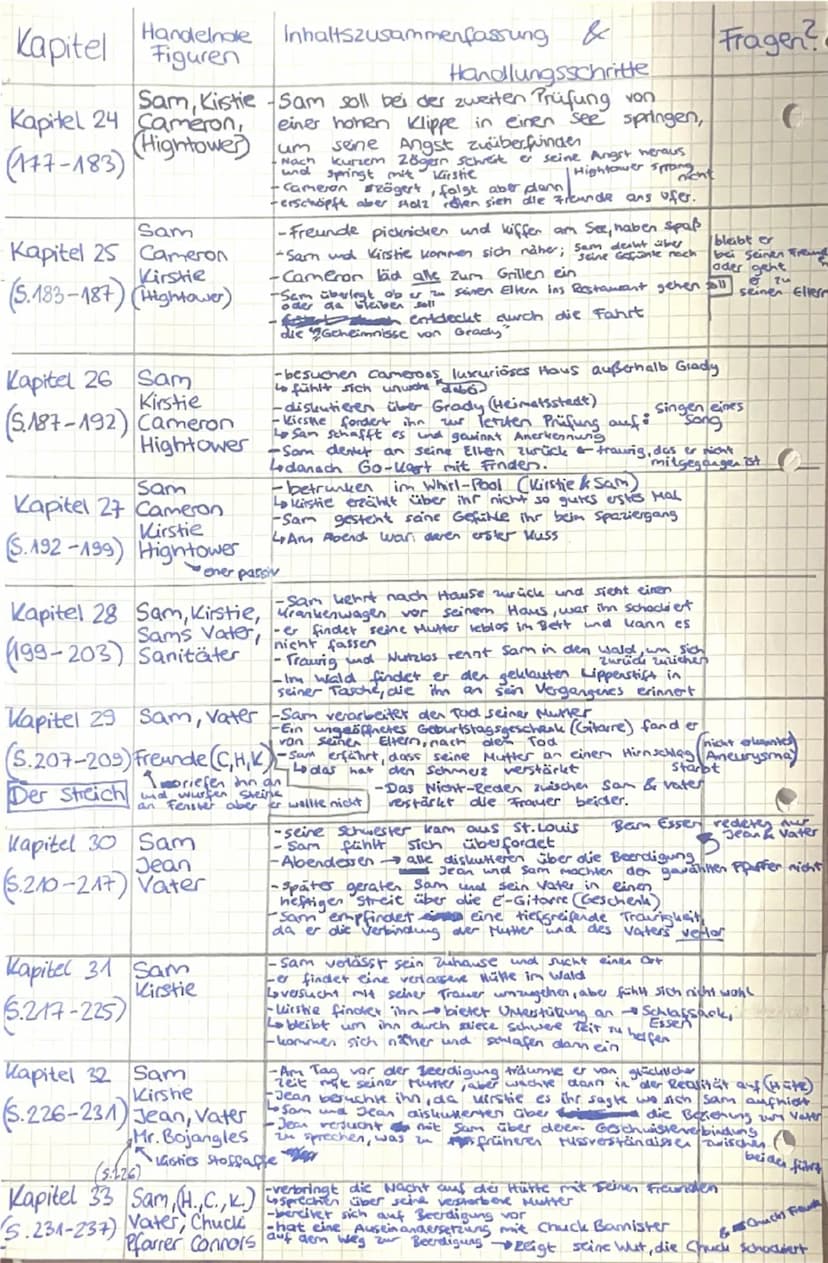 Kapitel
Handelnde
Figuren
Inhaltszusammenfassung &
Handlungsschritte
Fragen?
Kapitel 24
(177-183)
Sam, Kirstie
Cameron,
(Hightower)
- Sam soll bei der zweiten Prüfung von
einer hohen Klippe in einen See springen,
um seine Angst zu überfwinden
- Nach kurzem Zögern schreit er seine Angst heraus
und springt mit Kirstie
Hightower sprang
nicht
- Cameron zögert, folgt aber dann
- erschöpft aber stolz retten sich die Freunde ans Ufer.
Kapitel 25
(S.183-187)
Sam
Cameron
Kirstie
(Hightower)
- Freunde picknicken und kiffen am See, haben Spaß
- Sam und Kirstie kommen sich näher; Sam denkt über
seine Gefühle nach
- Cameron läd alle zum Grillen ein
- Sam überlegt ob er zu seinen Eltern ins Restaurant gehen soll
oder da bleiben soll
- entdeckt durch die Fahrt
die "Geheimnisse von Grady"
bleibt er
bei seinen Freund
oder geht
er zu
seinen Eltern
Kapitel 26
(S.187-192)
Sam
Kirstie
Cameron
Hightower
- besuchen Camerons luxuriöses Haus außerhalb Grady
↳ fühlt sich unwohl dabei
- diskutieren über Grady (Heimatsstadt)
- Kirstie fordert ihn zur letzten Prüfung auf: Singen eines
Song
↳ Sam schafft es und gewinnt Anerkennung
- Sam denkt an seine Eltern zurück → traurig, das er nicht
mitgegangen ist
↳ danach Go-Kart mit Finden.
Kapitel 27
(S.192-199)
Sam
Cameron
Kirstie
Hightower
eher passiv
- betrunken im Whirl-Pool (Kirstie & Sam)
↳ Kirstie erzählt über ihr nicht so gutes erstes Mal
- Sam gesteht seine Gefühle ihr beim Spaziergang
↳ Am Abend war deren erster Kuss
Kapitel 28
(199-203)
Sam, Kirstie,
Sams Vater,
Sanitäter
- Sam kehrt nach Hause zurück und sieht einen
Krankenwagen vor seinem Haus, war ihn schockiert
- er findet seine Mutter leblos im Bett und kann es
nicht fassen
- Traurig und Nutzlos rennt Sam in den Wald, um sich
zurück zuziehen
- Im Wald findet er den geklauten Lippenstift in
seiner Tasche, die ihn an sein Vergangenes erinnert
Kapitel 29
(S.207-209)
Der Streich
Sam, Vater
Freunde (C,H,K)
riefen ihn an
und wurfen Steine
an Fenster aber er wollte nicht
- Sam verarbeitet den Tod seiner Mutter
- Ein ungeöffnetes Geburtstagsgeschenk (Gitarre) fand er
von seinen Eltern, nach dem Tod
- Sam erfährt, dass seine Mutter an einem Hirnschlag (nicht erkanntes
Aneurysma)
starbt
↳ das hat den Schmerz verstärkt
- Das Nicht-Reden zwischen Sam & Vater
verstärkt die Trauer beider.
Kapitel 30
(S.210-217)
Sam
Jean
Vater
- seine Schwester kam aus St. Louis
Beim Essen redeten nur
Jean & Vater
- Sam fühlt sich überfordet
- Abendessen → alle diskutieren über die Beerdigung
Jean und Sam mochten den gewählten Pfarrer nicht
- später geraten Sam und sein Vater in einen
heftigen Streit über die E-Gitarre (Geschenk)
- Sam empfindet eine tiefgreifende Traurigkeit,
da er die Verbindung der Mutter und des Vaters verlor
Kapitel 31
(S.217-225)
Sam
Kirstie
- Sam verlässt sein Zuhause und sucht einen Ort
- er findet eine verlassene Hütte im Wald
↳ versucht mit seiner Trauer umzugehen, aber fühlt sich nicht wohl
- Kirstie findet ihn → bietet Unterstützung an → Schlafsack,
Essen
↳ bleibt um ihn durch diese schwere Zeit zu helfen
- kommen sich näher und schlafen dann ein
Kapitel 32
(S.226-231)
Sam
Kirstie
Jean, Vater
Mr. Bojangles
Kirsties Stoffaffe
(S.126)
- Am Tag vor der Beerdigung träumte er von glücklicher
Zeit mit seiner Mutter, aber wachte dann in der Realität auf (Hütte)
- Jean besuchte ihn, da Kirstie es ihr sagte wo sich Sam aufhielt
↳ Sam und Jean diskutierten über die Beziehung zum Vater
- Jean versucht mit Sam über deren Geschwisterverbindung
zu sprechen, was zu früheren Missverständissen zwischen
beiden führt
Kapitel 33
(S.231-237)
Sam, (H., C., K.)
Vater, Chuck
Pfarrer Connors
- verbringt die Nacht aus der Hütte mit seinen Freunden
↳ sprechen über seine verstorbene Mutter
- bereitet sich auf Beerdigung vor
- hat eine Auseinandersetzung mit Chuck Bannister
& Chucks
auf dem Weg zur Beerdigung → zeigt seine Wut, die Chuck schockiert